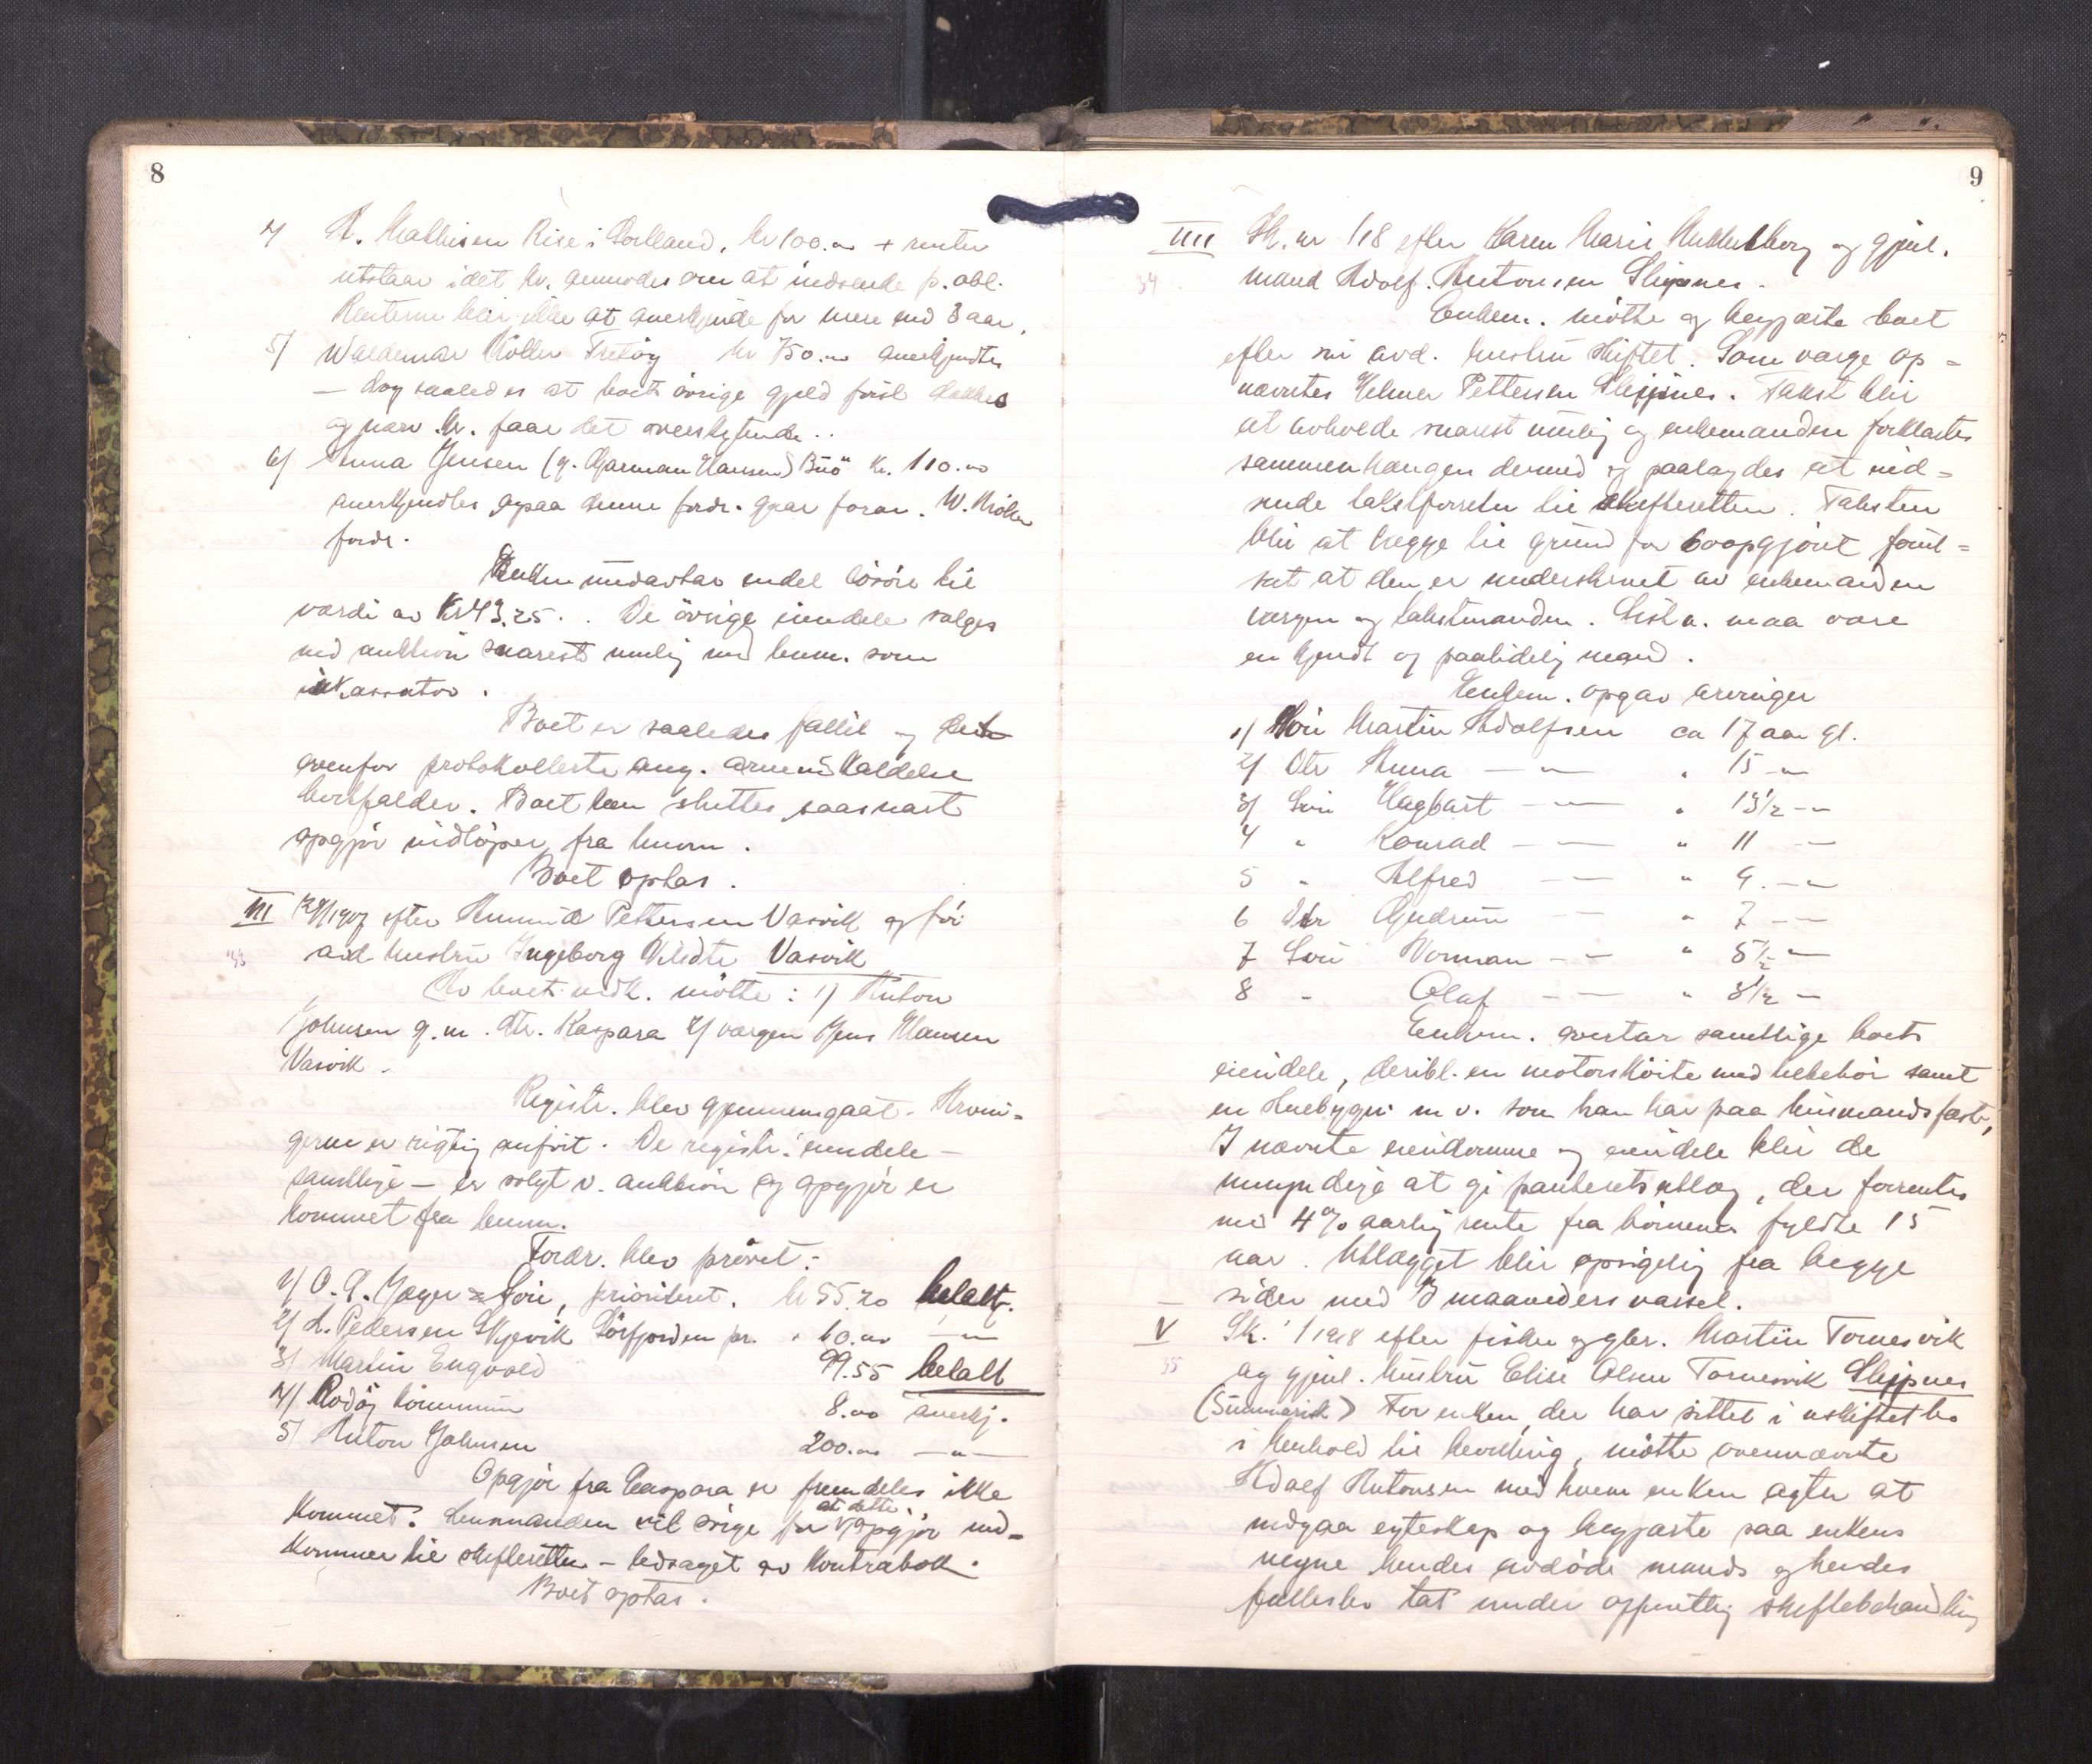 8
4/ A. Mathisen Rise i Lolland, kr 100.00 + renter
utstaar idet kr. anmodes om at indsende p. obl.
Renterne blir ikke at anerkjende for mere end 3 aar.
5/ Waldemar Möller Trekøy kr 750.00 anerkjendtes
— dog saaledes at boets övrige gjeld först dækkes
og nævn. kr. faar det overskytende..
6/ Anna Jensen (g. Hansen) Buö kr. 110.00
anerkjendtes ogsaa denne fordr. gaar foran. W. Möller
fordr.
Enken undavtar endel lösöre til
værdi av kr 43.25.. De övrige eiendele sælges
ved auktion snarest mulig med lensm. som
inkassator.
Boet er saaledes fallit og det
ovenfor protokollerte ang. arveinkaldelse
bortfalder. Boet kan sluttes saasnart
opgjör indlöper fra lensm.
Boet optas.
III 12/1 1907 efter Amund Pettersen Vasvik og før
avd hustru Ingeborg Vasvik
33
Av boets vedk. mötte: 1) Anton
Johnsen g. m. dtr. Kaspara 2/ værgen Jens Hansen
Vasvik.
Registr. blev gjennemgaat. Arvin-
gerne er rigtig anfört. De registr. eiendele —
samtlige — er solgt v. auktion og opgjör er
kommet fra lensm.
Fordr. blev prövet:
1/ O. A. Jæger & Sön, prioritert. kr 55.20 betalt.
2/ L. Pedersen Skjevik Sörfjorden pr. " 60.00 — " —
3/ Martin Engvold 99.55 betalt
4/ Rödöy kommune 8.00 anerkj.
5/ Anton Johnsen 200.00 — " —
Opgjör fra Kaspara er fremdeles ikke
kommet. Lensmanden vil sörge for at dette opgjör ind-
kommer til skifteretten — ledsaget av kontrabok.
Boet optas.
9
IIII Sk. nr 1/18 efter Karen Marie og gjenl.
34 mand Adolf Antonsen Sleipnes.
Enkem. mötte og begjærte boet
efter sin avd. hustru skiftet. Som værge op-
nævntes Helmer Pettersen Sleipnes. Takst blir
at avholde snarest mulig og enkemanden forklartes
sammenhængen dermed og paalagdes at ind-
sende takstforretn til skifteretten. Taksten
blir at lægge til grund for boopgjöret forut-
sat at den er underskrevet av enkemanden
værgen og takstmanden. Sistn. maa være
en kjendt og paalidelig mand.
Enkem. opgav arvinger
1/ Sön Martin Adolfsen ca 17 aar gl.
2/ Dtr Anna — " — " 15 — "
3/ Sön Hagbart — " — " 13 1/2 — "
4 " Konrad — " — " 11 — "
5 " Alfred — " — " 9. — "
6 Dtr Gudrun — " — " 7 — "
7 Sön Norman — " — " 5 1/2 — "
8 " Olaf — " — " 3 1/2 — "
Enkem. overtar samtlige boets
eiendele, deribl. en motorsköite med tilbehör samt
en husbygn. m v. som han har paa husmandsfæste,
I nævnte eiendomme og eiendele blir de
umyndige at gi panteretsutlæg, der forrentes
med 4% aarlig rente fra börnenes fyldte 15
aar. Utlægget blir opsigelig fra begge
sider med 3 maaneders varsel.
V Sk. 1/1918 efter fisker og gbr. Martin Tornesvik
35 og gjenl. hustru Elise Olsen Tornesvik Sleipnes
(Summarisk) For enken, der har sittet i uskiftet bo
i henhold til bevilling, mötte ovennævnte
Adolf Antonsen med hvem enken agter at
indgaa egteskap og begjærte paa enkens
vegne hendes avdöde mands og hendes
fællesbo tat under offentlig skiftebehandling